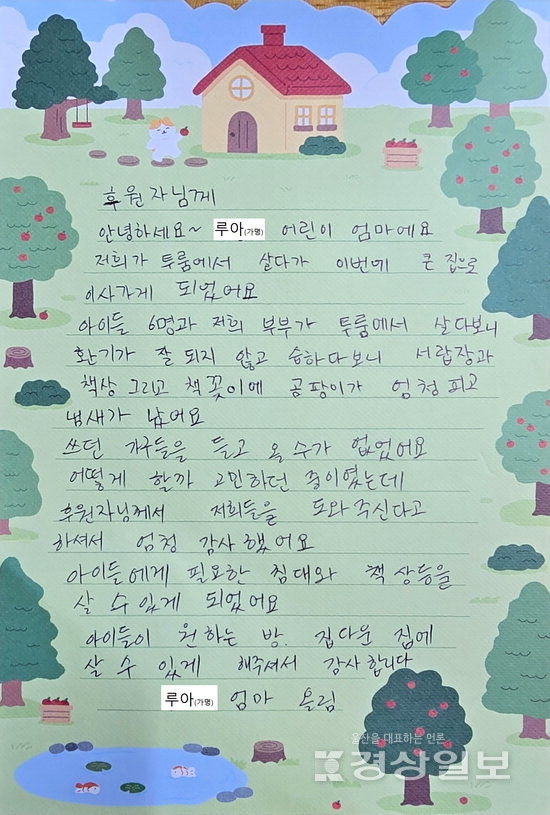 후원자님께
안녕하세요~ 루아(가명) 어린이 엄마에요
저희가 투룸에서 살다가 이번에 큰 집으로
이사가게 되었어요
아이들 6명과 저희 부부가 투룸에서 살다보니
환기가 잘 되지 않고 습하다보니 서랍장과
책상 그리고 책꽂이에 곰팡이가 엄청 피고
냄새가 났어요
쓰던 가구들을 들고 올 수가 없었어요
어떻게 할까 고민하던 중이였는데
후원자님께서 저희들을 도와주신다고
하셔서 엄청 감사했어요
아이들에게 필요한 침대와 책상등을
살 수 있게 되었어요
아이들이 원하는 방. 집다운 집에
살 수 있게 해주셔서 감사합니다
루아(가명) 엄마 올림
울산을 대표하는 언론
경상일보